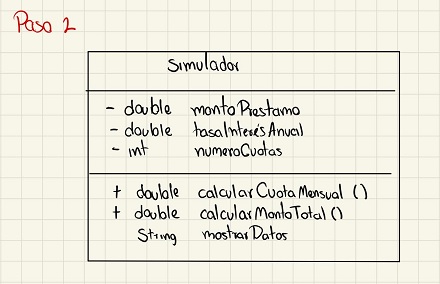 Paso 2
Simulador
- double montoPrestamo
- double tasaInterésAnual
- int numeroCuotas
+ double calcularCuotaMensual ()
+ double calcularMontoTotal ()
String mostrarDatos